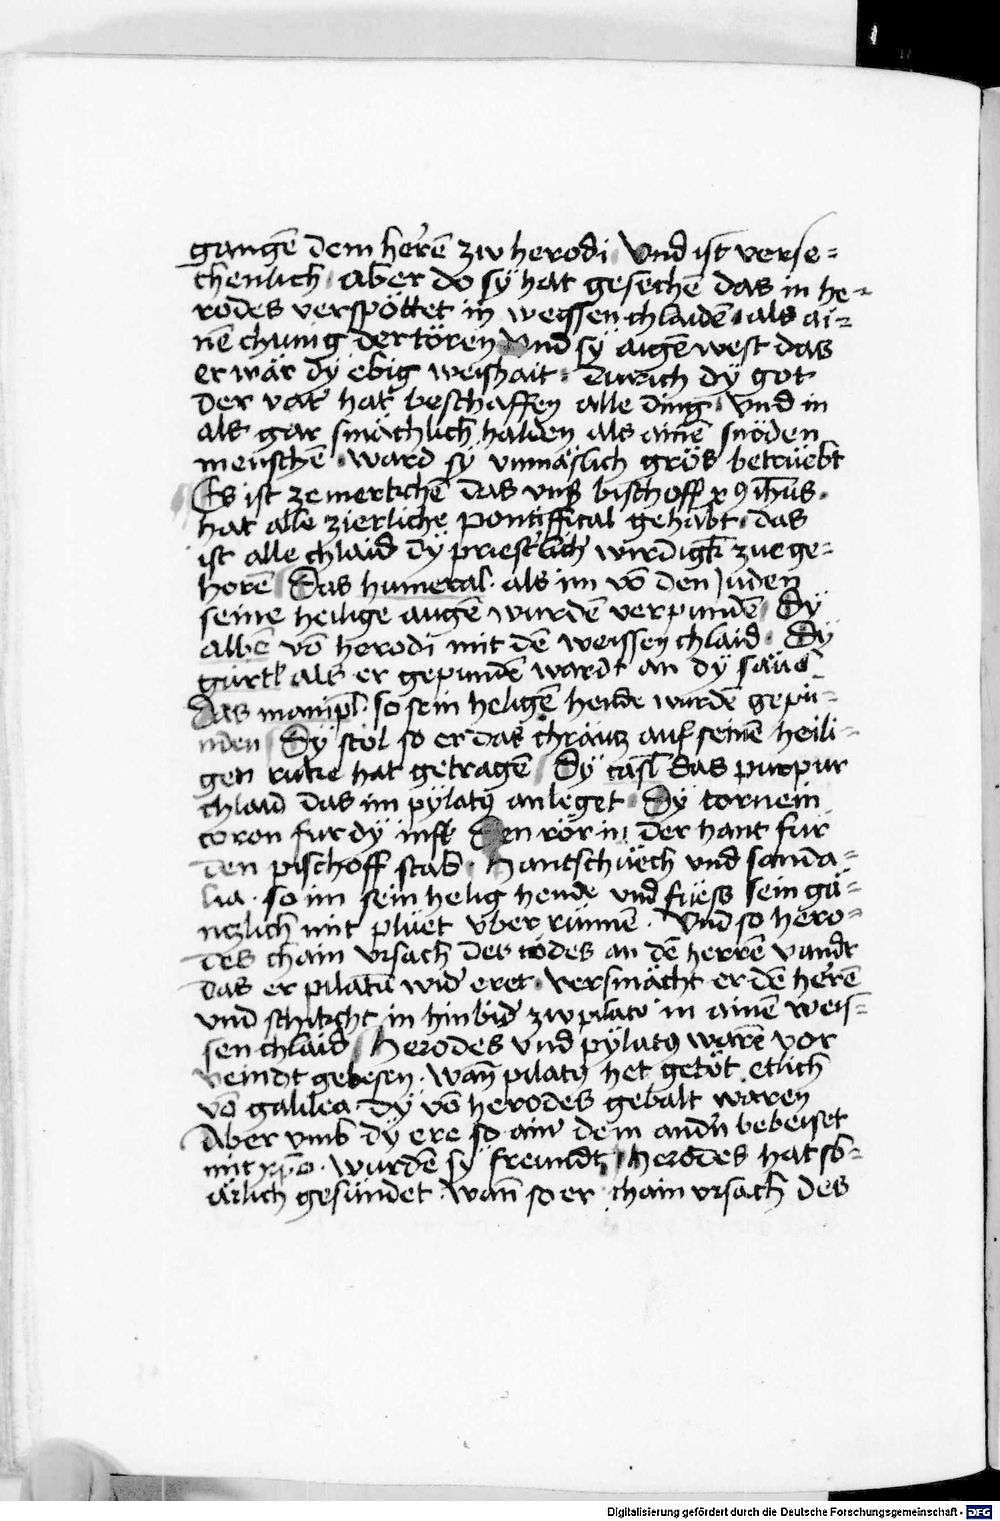 gangē dem herrē zw herodi Vnd ist verse=
chenlich · aber do sÿ hat gesechē das in he=
rodes verspöttet in weyssen chlaidē · als ai=
nē chunig der tören Vnd sÿ aigē west das
er wär dÿ ebig weishait · durich dÿ got
der vat͛ hat beschaffen alle ding · vnd in
als gar smächlich halden als ainē snöden
menschē · ward sÿ vnmäslich grös betrüebt
Es ist ze merkchē das vns bischoff xꝰ ih̄us ·
hat alle zierliche pontiffical gehabt · das
ist alle chlaid dÿ priest͛lich wirdigk̄ zuege=
horē Das humeral · als im vō den Juden
seine heilige augē wurdē verpundē Dÿ
albē vō herodi mit dē weissen chlaid · Dÿ
gurtl als er gepundē wardt an dÿ säul
Das manipl · so sein heligē hende wurdē gepu=
nden Dÿ stol so er das chräutz auf seinē heili=
gen rukē hat getragē Dÿ casl das purpur
chlaid das im pÿlatꝰ anleget · Dÿ tornein
coron fur dÿ infl Den rör in der hant fur
den pischoff stab · Hantschuech vnd sanda=
lia · so im sein helig hende vnd füess sein gä=
nczlich mit plüet vber runnē · Vnd so hero=
des chain vrsach des todes an dē herrē vandt
das er pilatū wid͛ eret · versmächt er dē herrē
vnd schikcht in hinbid͛ zw pilato in ainē weis=
sen chlaid Herodes vnd pÿlatꝰ warē vor
veindt gebesen · wan̄ pilatꝰ het getöt etlich
vō galilea · dÿ vō herodes gebalt waren
Aber vmb dÿ ere so ain͛ dem and͛n bebeiset
mit xp̄o · wurdē sÿ freundt Herodes hat sb=
ärlich gesündet · wan̄ so er chain vrsach des
Digitalisierung gefördert durch die Deutsche Forschungsgemeinschaft - DFG